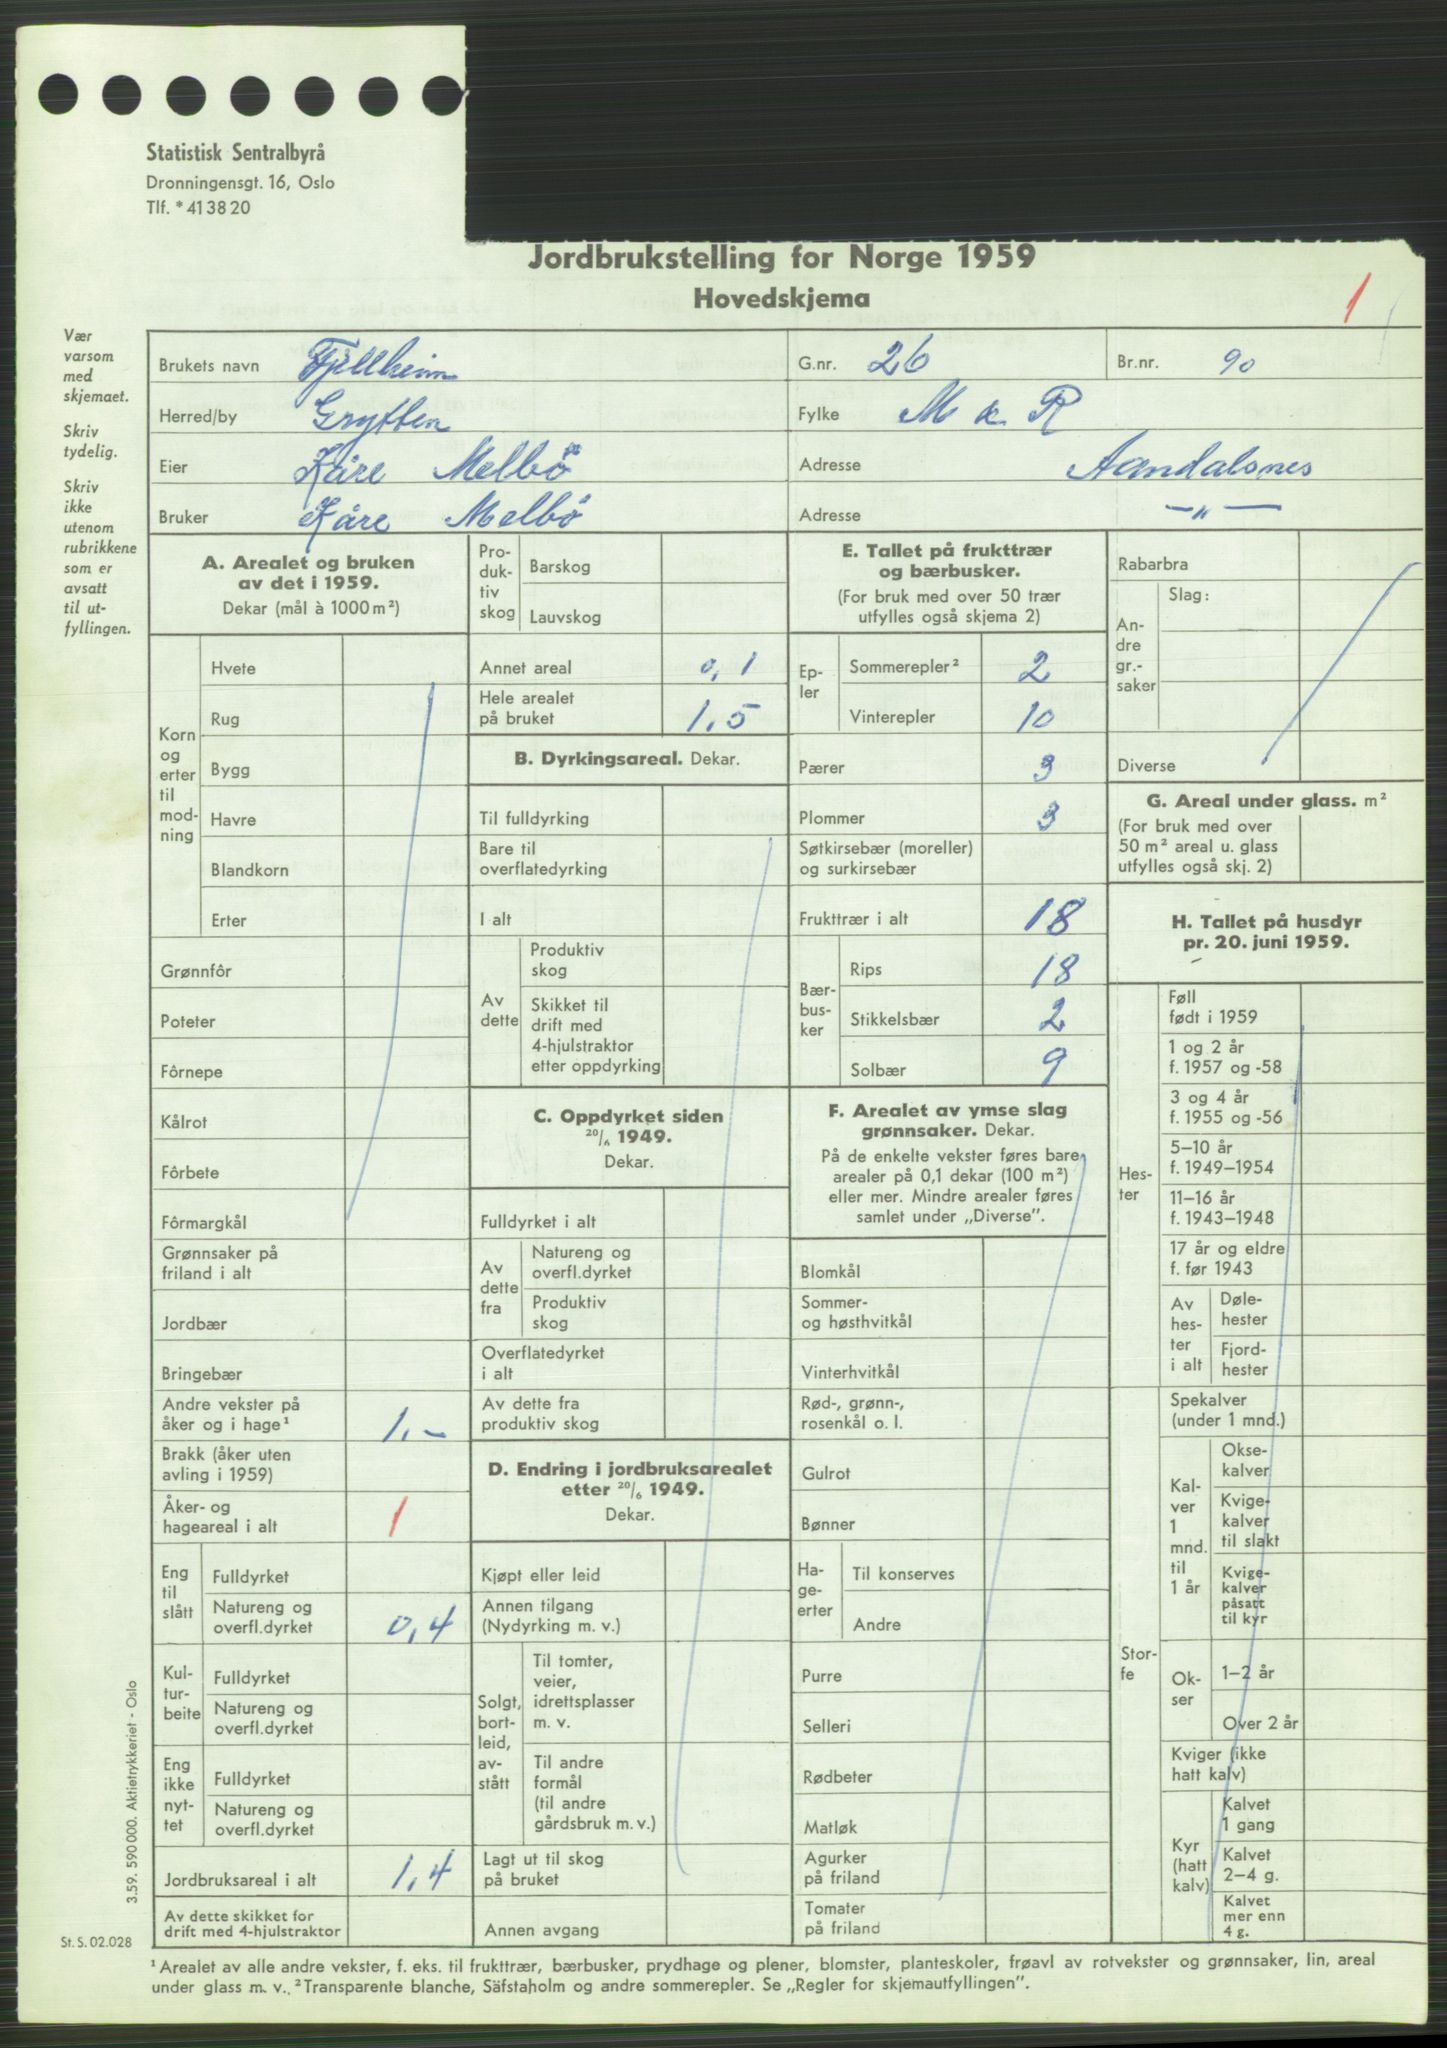 Statistisk Sentralbyrå
Dronningensgt. 16, Oslo
Tlf. *41 38 20
Jordbrukstelling for Norge 1959
Hovedskjema
1
Vær
varsom
med
skjemaet.
Skriv
tydelig.
Skriv
ikke
utenom
rubrikkene
som er
avsatt
til ut-
fyllingen.
Brukets navn Fjellheim G.nr. 26 Br.nr. 90
Herred/by Grytten Fylke M & R
Eier Kåre Melbö Adresse Aandalsnes
Bruker Kåre Melbö Adresse —„—
A. Arealet og bruken
av det i 1959.
Dekar (mål à 1000 m²)
Korn
og
erter
til
mod-
ning
Hvete
Rug
Bygg
Havre
Blandkorn
Erter
Grønnfôr
Poteter
Fôrnepe
Kålrot
Fôrbete
Fôrmargkål
Grønnsaker på
friland i alt
Jordbær
Bringebær
Andre vekster på
åker og i hage¹ 1.-
Brakk (åker uten
avling i 1959)
Åker- og
hageareal i alt 1
Eng
til
slått
Fulldyrket
Natureng og
overfl.dyrket 0,4
Kul-
tur-
beite
Fulldyrket
Natureng og
overfl.dyrket
Eng
ikke
nyt-
tet
Fulldyrket
Natureng og
overfl.dyrket
Jordbruksareal i alt 1,4
Av dette skikket for
drift med 4-hjulstraktor
Pro-
duk-
tiv
skog
Barskog
Lauvskog
Annet areal 0,1
Hele arealet
på bruket 1,5
B. Dyrkingsareal. Dekar.
Til fulldyrking
Bare til
overflatedyrking
I alt
Av
dette
Produktiv
skog
Skikket til
drift med
4-hjulstraktor
etter oppdyrking
C. Oppdyrket siden
20/6 1949.
Dekar.
Fulldyrket i alt
Av
dette
fra
Natureng og
overfl.dyrket
Produktiv
skog
Overflatedyrket
i alt
Av dette fra
produktiv skog
D. Endring i jordbruksarealet
etter 20/6 1949.
Dekar.
Kjøpt eller leid
Annen tilgang
(Nydyrking m. v.)
Solgt,
bort-
leid,
av-
stått
Til tomter,
veier,
idrettsplasser
m. v.
Til andre
formål
(til andre
gårdsbruk m. v.)
Lagt ut til skog
på bruket
Annen avgang
E. Tallet på frukttrær
og bærbusker.
(For bruk med over 50 trær
utfylles også skjema 2)
Ep-
ler
Sommerepler² 2
Vinterepler 10
Pærer 3
Plommer 3
Søtkirsebær (moreller)
og surkirsebær
Frukttrær i alt 18
Bær-
bus-
ker
Rips 18
Stikkelsbær 2
Solbær 9
F. Arealet av ymse slag
grønnsaker. Dekar.
På de enkelte vekster føres bare
arealer på 0,1 dekar (100 m²)
eller mer. Mindre arealer føres
samlet under „Diverse".
Blomkål
Sommer-
og høsthvitkål
Vinterhvitkål
Rød-, grønn-,
rosenkål o. l.
Gulrot
Bønner
Ha-
ge-
erter
Til konserves
Andre
Purre
Selleri
Rødbeter
Matløk
Agurker
på friland
Tomater
på friland
Rabarbra
An-
dre
gr.-
saker
Slag:
Diverse
G. Areal under glass. m²
(For bruk med over
50 m² areal u. glass
utfylles også skj. 2)
H. Tallet på husdyr
pr. 20. juni 1959.
Hes-
ter
Føll
født i 1959
1 og 2 år
f. 1957 og -58
3 og 4 år
f. 1955 og -56
5–10 år
f. 1949–1954
11–16 år
f. 1943–1948
17 år og eldre
f. før 1943
Av
hes-
ter
i alt
Døle-
hester
Fjord-
hester
Stor-
fe
Spekalver
(under 1 mnd.)
Kal-
ver
1
mnd.
til
1 år
Okse-
kalver
Kvige-
kalver
til slakt
Kvige-
kalver
påsatt
til kyr
Ok-
ser
1–2 år
Over 2 år
Kviger (ikke
hatt kalv)
Kyr
(hatt
kalv)
Kalvet
1 gang
Kalvet
2–4 g.
Kalvet
mer enn
4 g.
3.59. 590 000. Aktietrykkeriet - Oslo
St. S. 02.028
¹ Arealet av alle andre vekster, f. eks. til frukttrær, bærbusker, prydhage og plener, blomster, planteskoler, frøavl av rotvekster og grønnsaker, lin, areal
under glass m. v. ² Transparente blanche, Säfstaholm og andre sommerepler. Se „Regler for skjemautfyllingen".